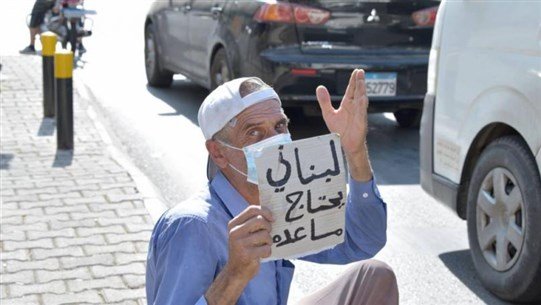 لبناني
يحتاج
مساعده
52779